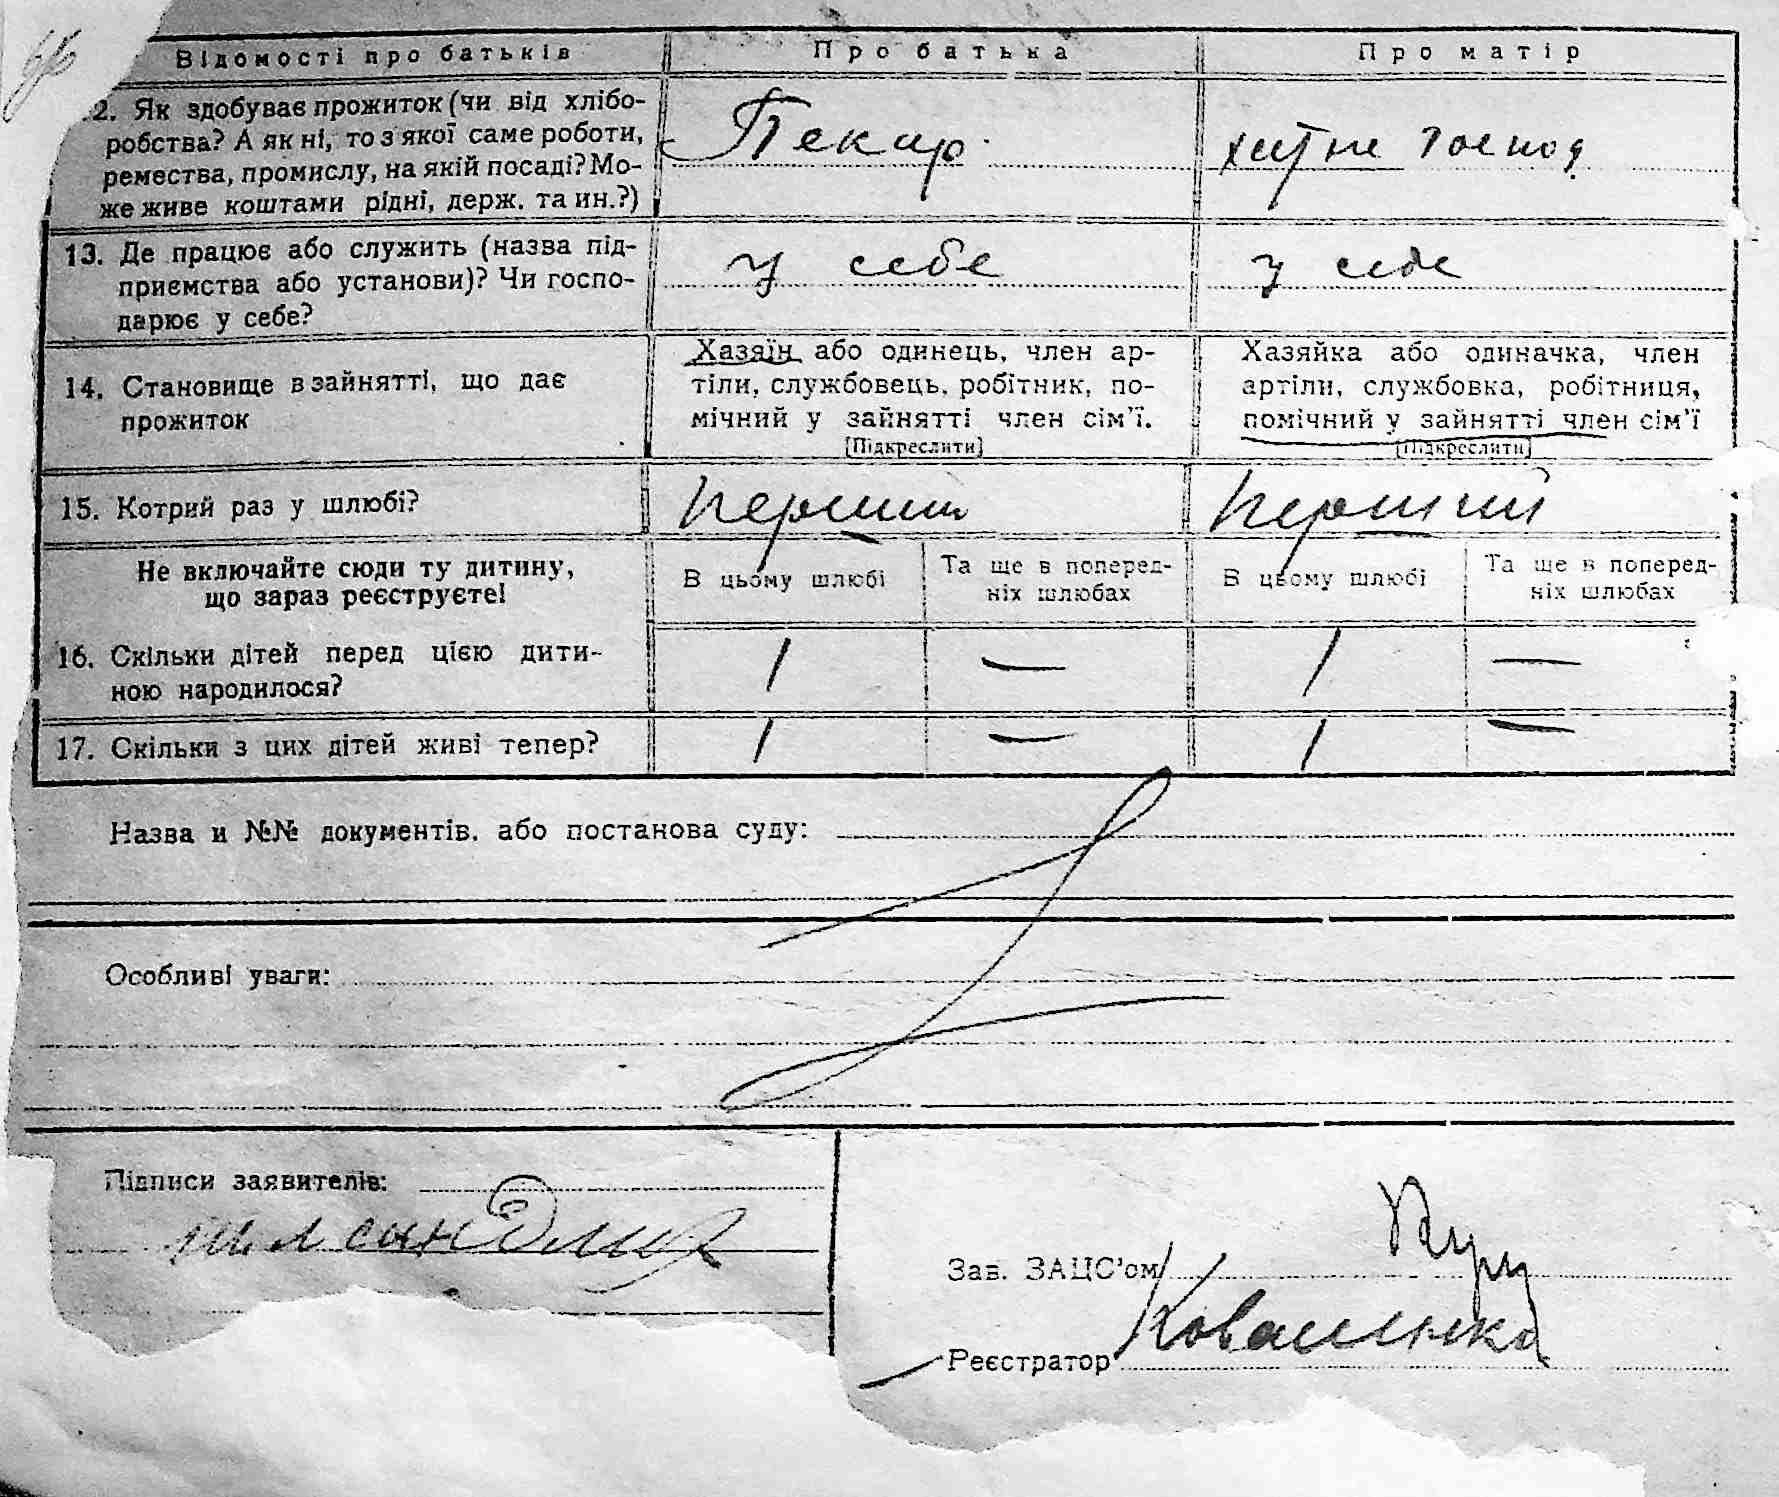 Відомості про батьків Про батька Про матір
2. Як здобуває прожиток (чи від хлібо-
робства? А як ні, то з якої саме роботи,
ремества, промислу, на якій посаді? Мо-
же живе коштами рідні, держ. та ин.?)
Пекар
хатнє господ
13. Де працює або служить (назва під-
приємства або установи)? Чи госпо-
дарює у себе?
у себе
у себе
14. Становище в зайнятті, що дає
прожиток
Хазяїн або одинець, член ар-
тіли, службовець, робітник, по-
мічний у зайнятті член сім'ї.
[Підкреслити]
Хазяйка або одиначка, член
артіли, службовка, робітниця,
помічний у зайнятті член сім'ї
[Підкреслити]
15. Котрий раз у шлюбі?
перший
перший
Не включайте сюди ту дитину,
що зараз реєструєте!
В цьому шлюбі
Та ще в поперед-
ніх шлюбах
В цьому шлюбі
Та ще в поперед-
ніх шлюбах
16. Скільки дітей перед цією дити-
ною народилося?
1 — 1 —
17. Скільки з цих дітей живі тепер?
1 — 1 —
Назва и №№ документів. або постанова суду:
Особливі уваги:
Підписи заявителів:
Зав. ЗАЦС'ом
Реєстратор Коваленко